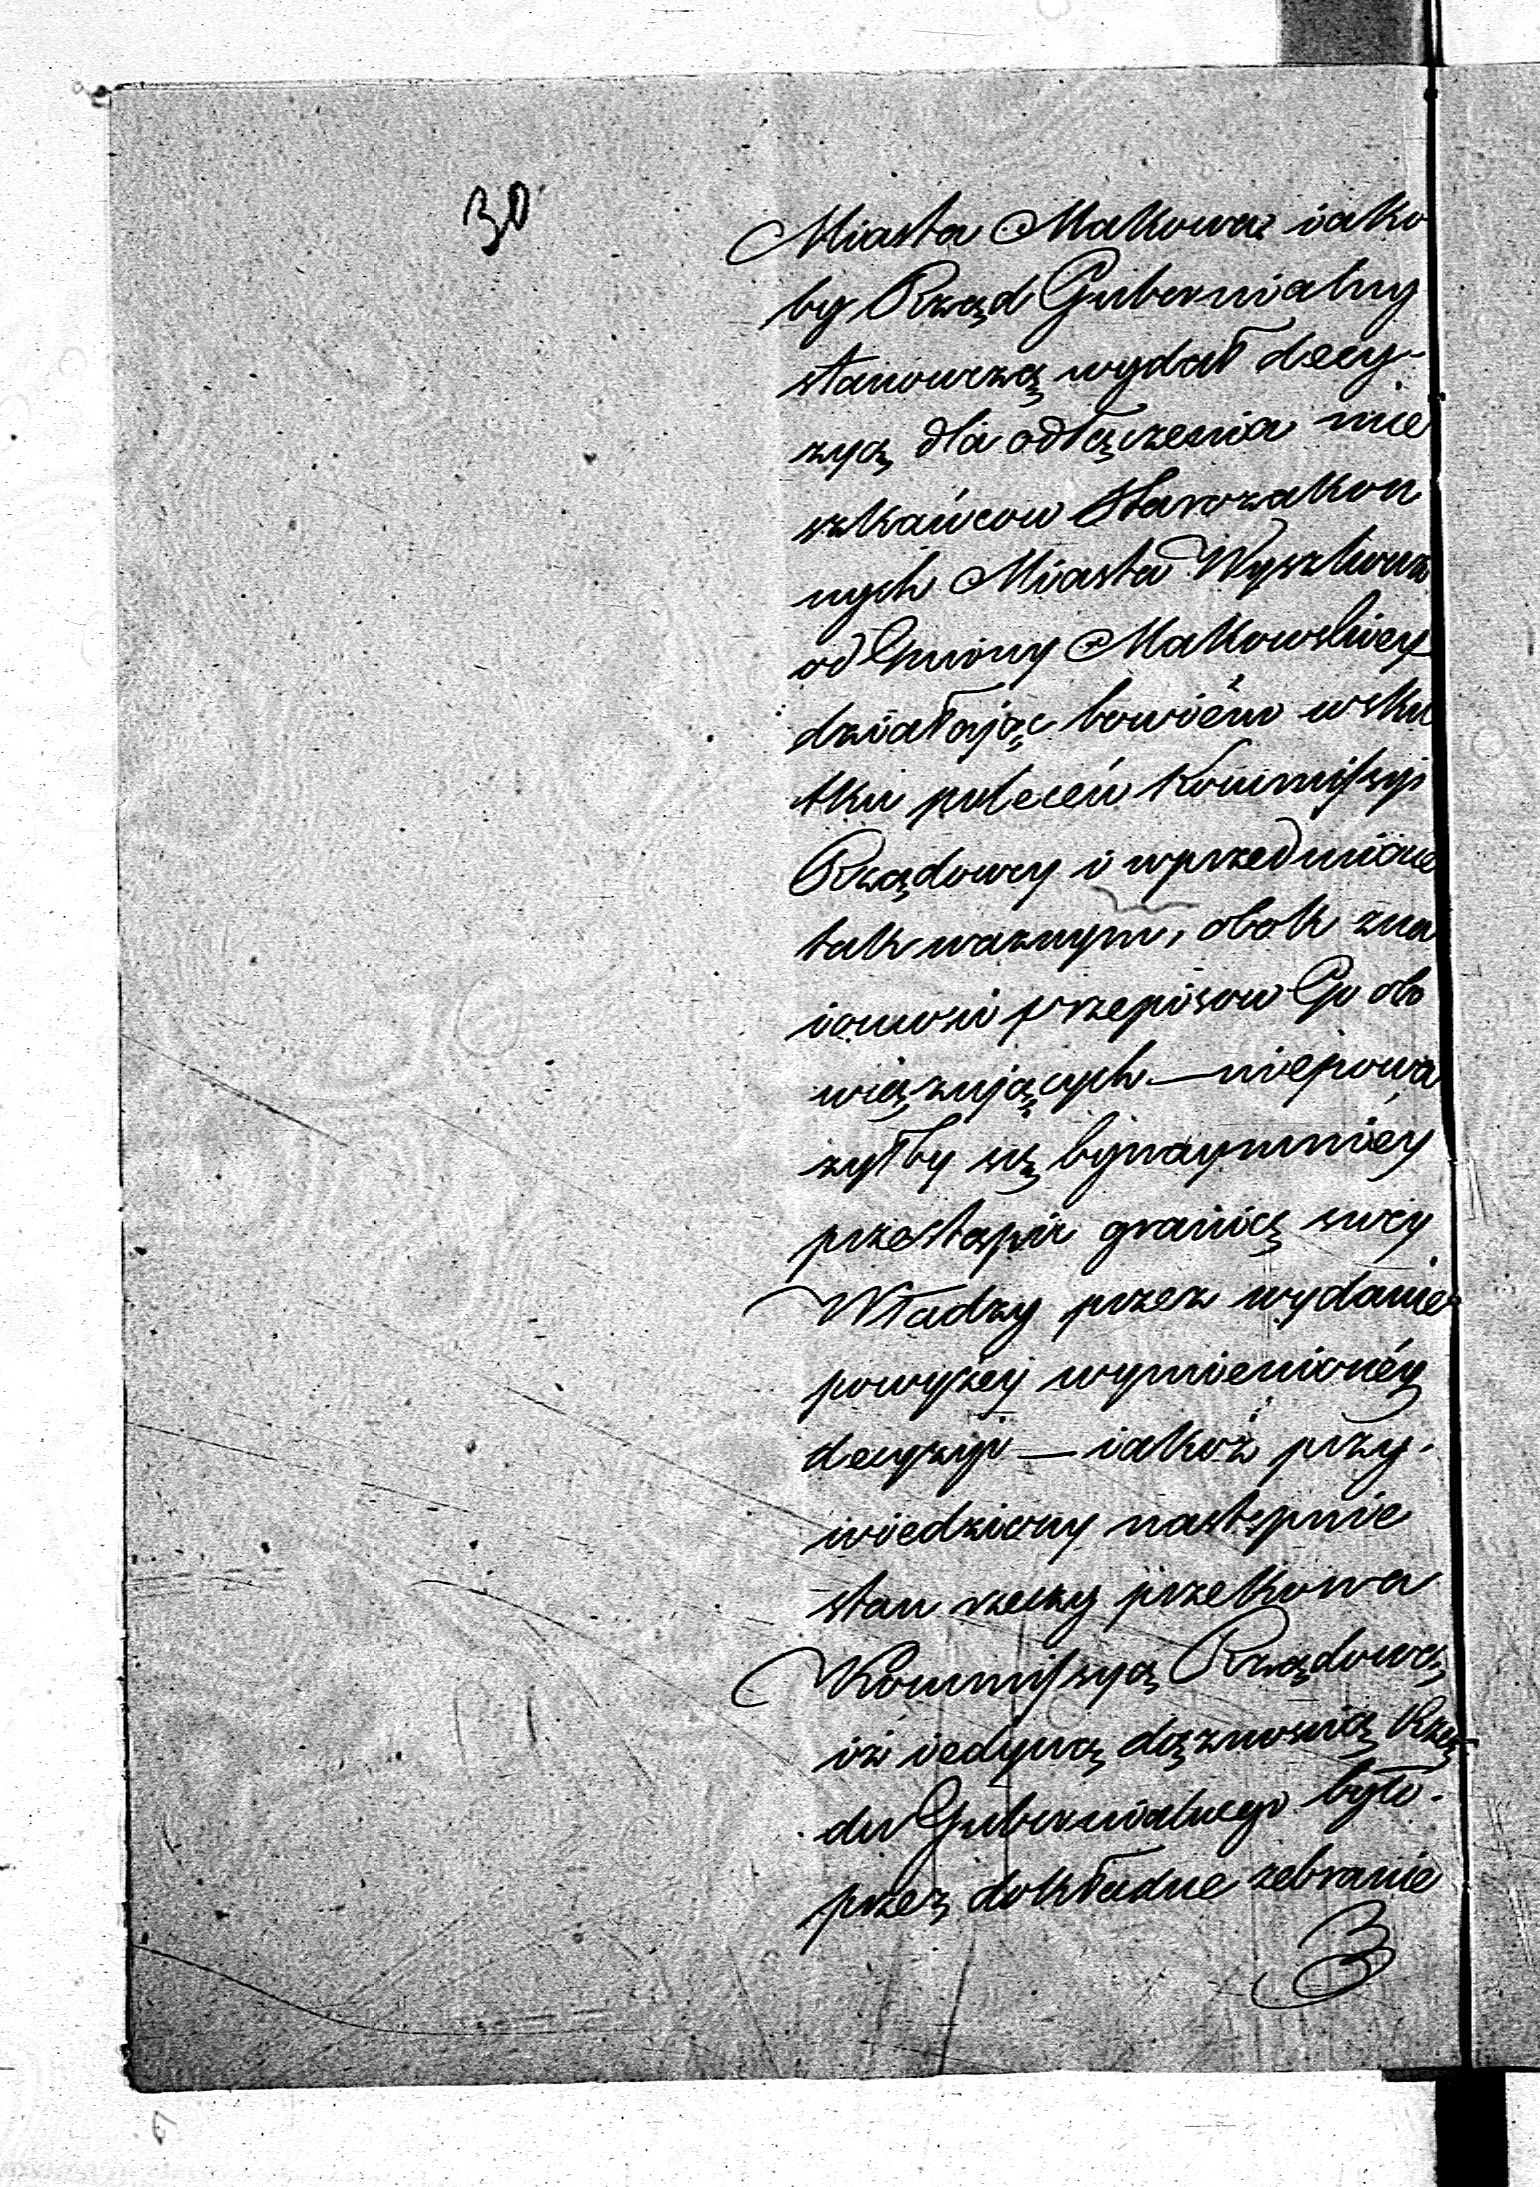 30
Miasta Makowa iako
by Rząd Gubernialny
stanowczą wydał decy-
zyą dla odłączenia mie
szkańcow Starozakon
nych Miasta Wyszkowa
od Gminy Makowskiey
działając bowiém wsku
tku poleceń Kommissyi
Rządowey i w przedmiocie
tak waznym, obok zna
iomosci przepisow Go obo
wiązujących — niepowa
zyłby się bynaymniéy
przestąpić granicę swey
Władzy przez wydanie
powyżey wymienionéy
decyzyi — iakoż przy-
wiedziony następnie
stan rzeczy przekona
Kommissyą Rządową
iż iedyną dążnoscią Rzą
du Gubernialnego było
przez dokładne zebranie